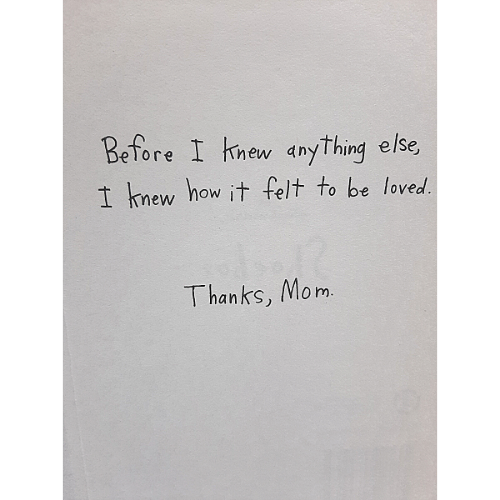 Before I knew anything else,
I knew how it felt to be loved.
Thanks, Mom.